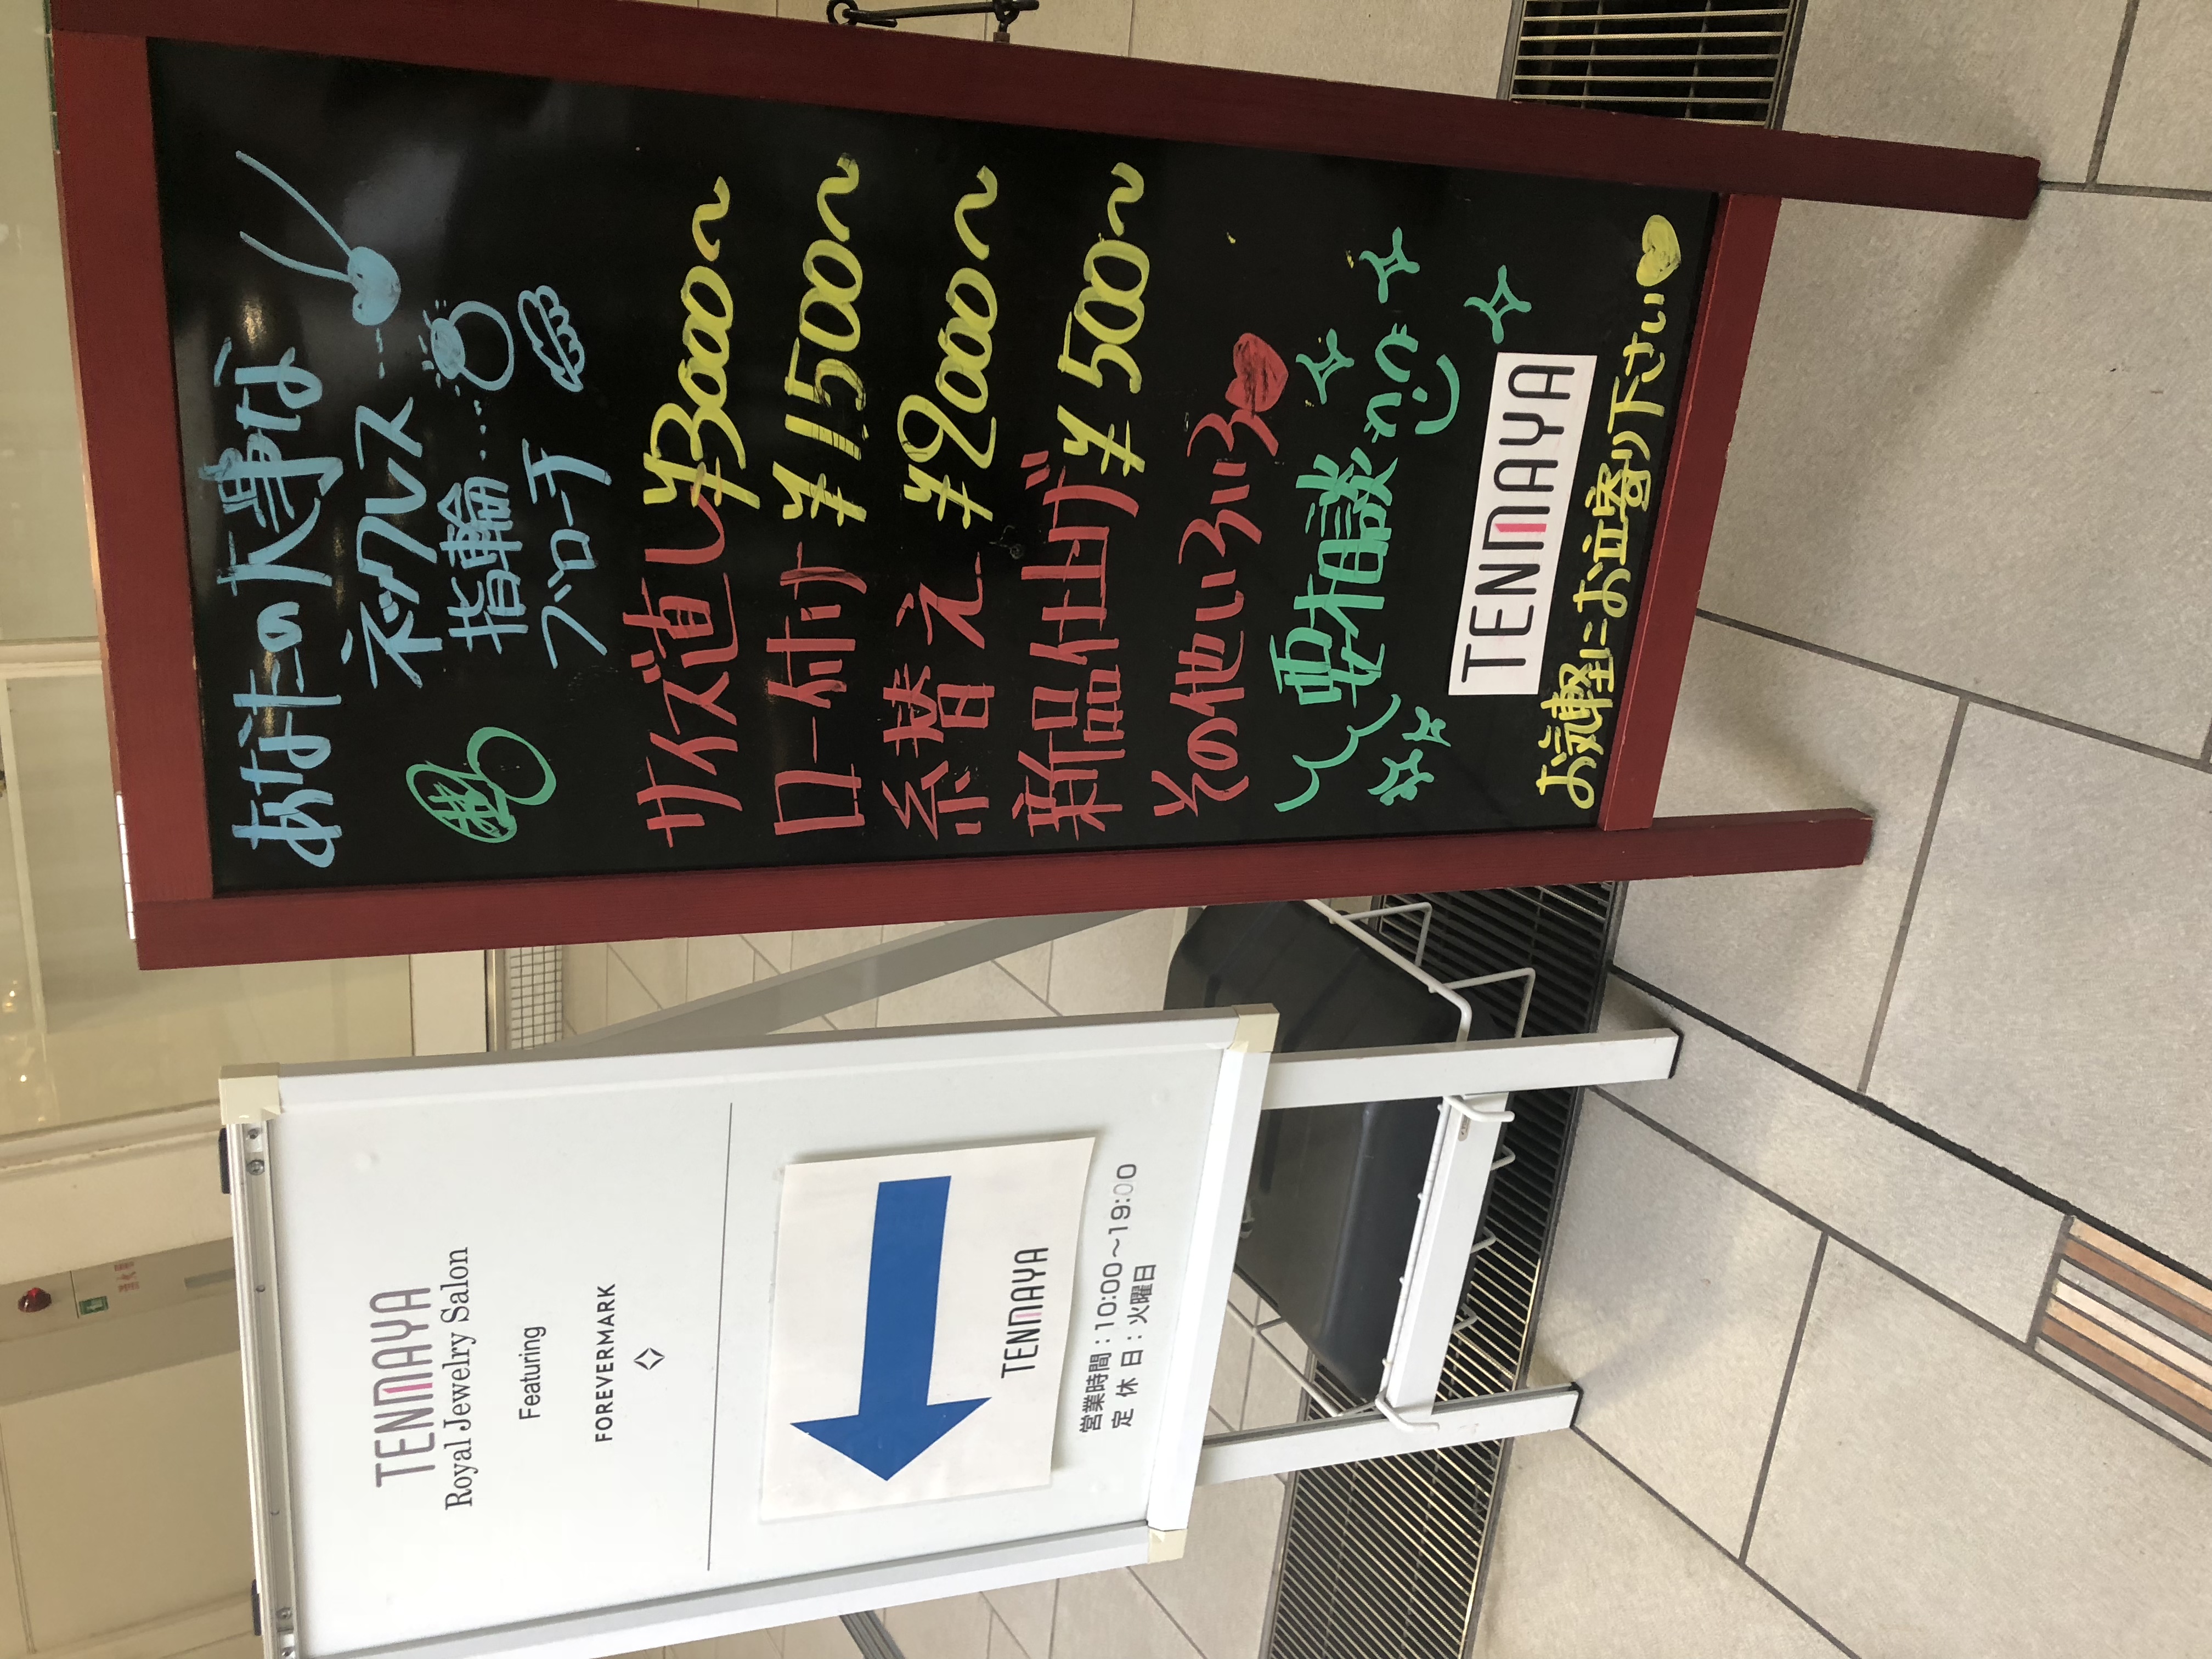 あなたの大事な
ネックレス
指輪…
ブローチ
サイズ直し ¥3000〜
ロー付け ¥1500〜
糸替え ¥2000〜
新品仕上げ ¥500〜
その他いろいろ
要相談
TENMAYA
お気軽にお立寄り下さい
TENMAYA
Royal Jewelry Salon
Featuring
FOREVERMARK
TENMAYA
営業時間：10:00～19:00
定休日：火曜日